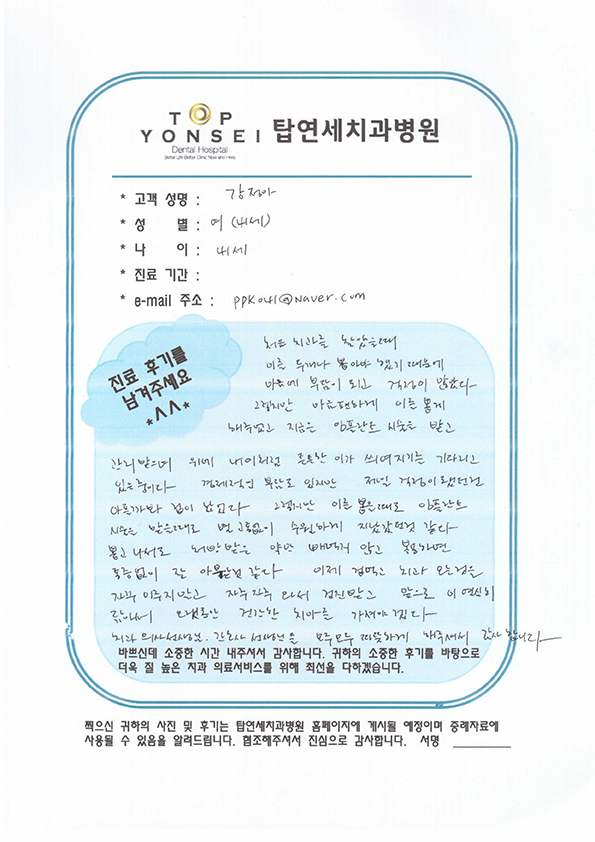 TOP
YONSEI 탑연세치과병원
Dental Hospital
Better Life Better Clinic Now and Here
* 고객 성명 : 강정아
* 성 별 : 여 (내세)
* 나 이 : 내세
* 진료 기간 :
* e-mail 주소 : ppk041@naver.com
진료 후기를
남겨주세요
*^^*
처음 치과를 찾았을때
이를 두개나 뽑아야 했기 때문에
마음에 부담이 되고 걱정이 많았다
그렇지만 마음편하게 이를 뽑게
해주었고 지금은 임플란트 시술을 받고
관리받으며 위에 내이처럼 튼튼한 이가 씌여지기를 기다리고
있는중이다 경제적인 부담도 있지만 제일 걱정이었던건
아플까봐 겁이 났었다 그렇지만 이를 뽑을때도 임플란트
시술을 받을때도 별 고통없이 수월하게 지났갔던것 같다
뽑고 나서도 처방받은 약만 빼먹지 않고 복용하면
통증없이 잘 아물은것 같다 이제 겁먹고 치과 오는것을
자꾸 미루지말고 자주 자주 와서 검진받고 앞으로 이 열심히
닦아서 오랫동안 건강한 치아를 가져야겠다
치과 의사선생님, 간호사 선생님들 모두모두 따뜻하게 해주셔서 감사합니다
바쁘신데 소중한 시간 내주셔서 감사합니다. 귀하의 소중한 후기를 바탕으로
더욱 질 높은 치과 의료서비스를 위해 최선을 다하겠습니다.
찍으신 귀하의 사진 및 후기는 탑연세치과병원 홈페이지에 게시될 예정이며 증례자료에
사용될 수 있음을 알려드립니다. 협조해주셔서 진심으로 감사합니다. 서명